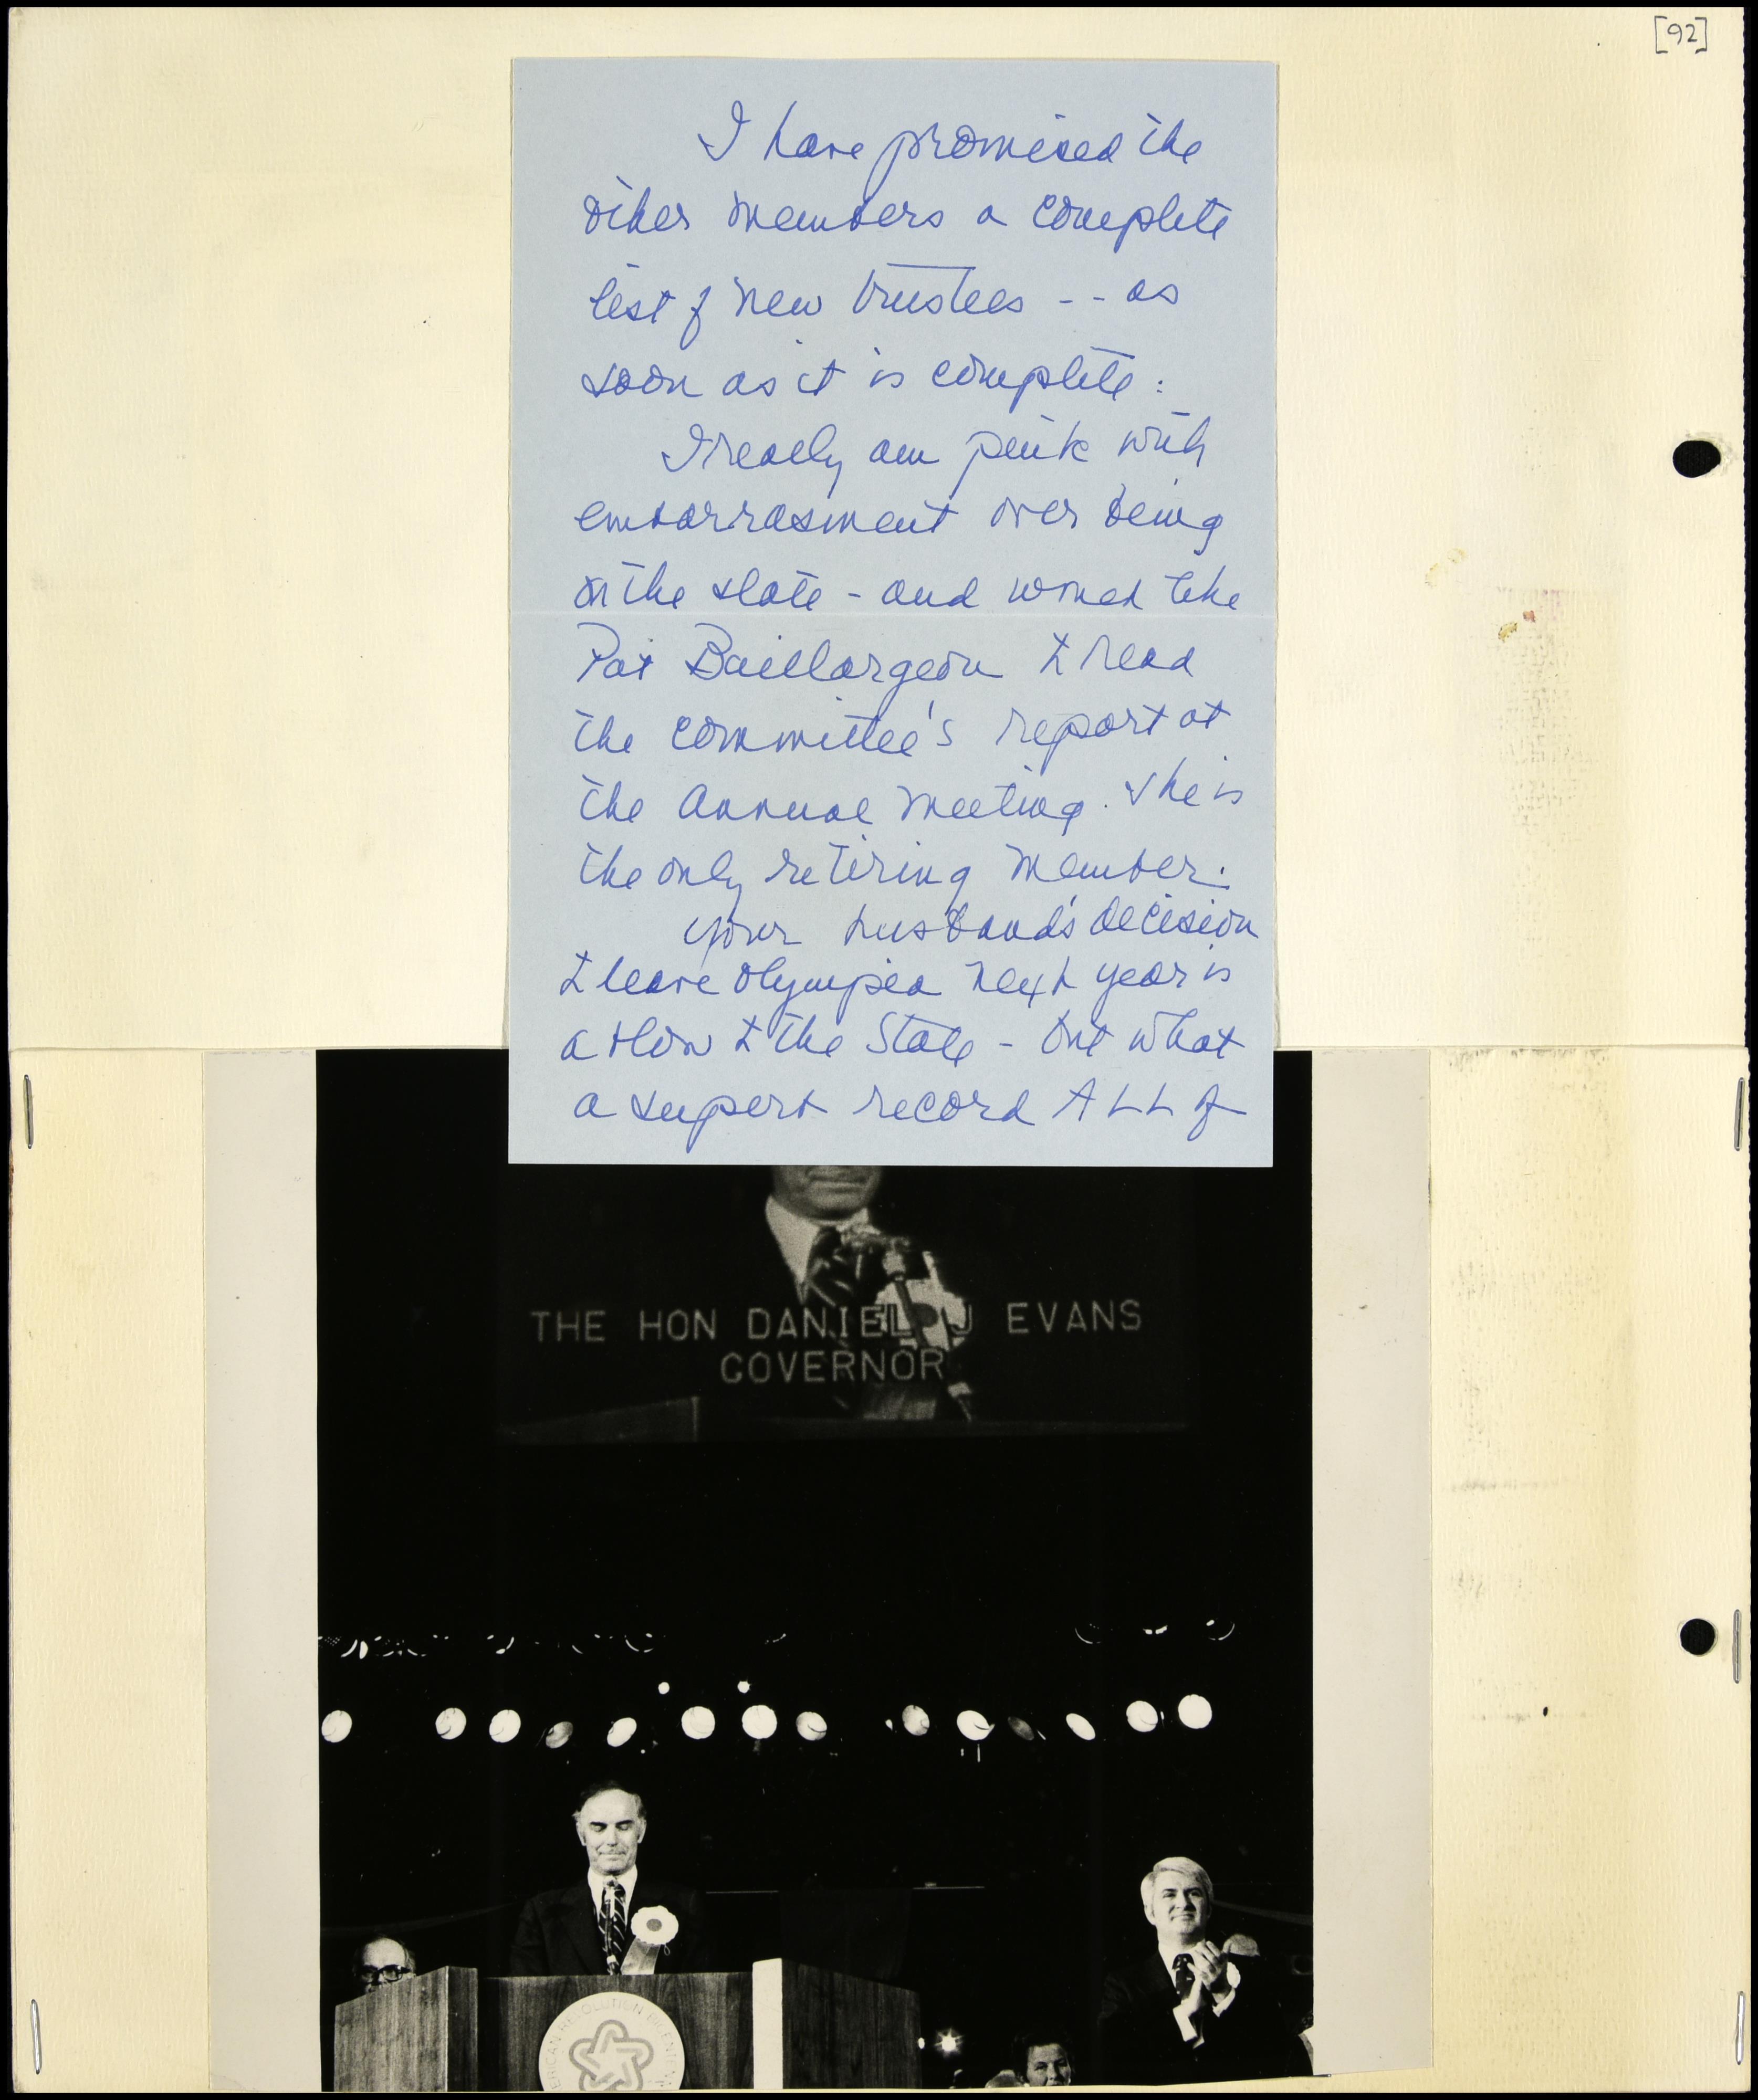 [92]
I have promised the
other members a complete
list of new trustees -- as
soon as it is complete.
I really am pink with
embarrasment over being
on the slate - and would like
Pat Baillargeon to read
the committee's report at
the annual meeting. She is
the only retiring member.
Your husband's decision
to leave Olympia next year is
a blow to the State - but what
a superb record ALL of
THE HON DANIEL J EVANS
GOVERNOR
ERICAN REVOLUTION BICENTEN